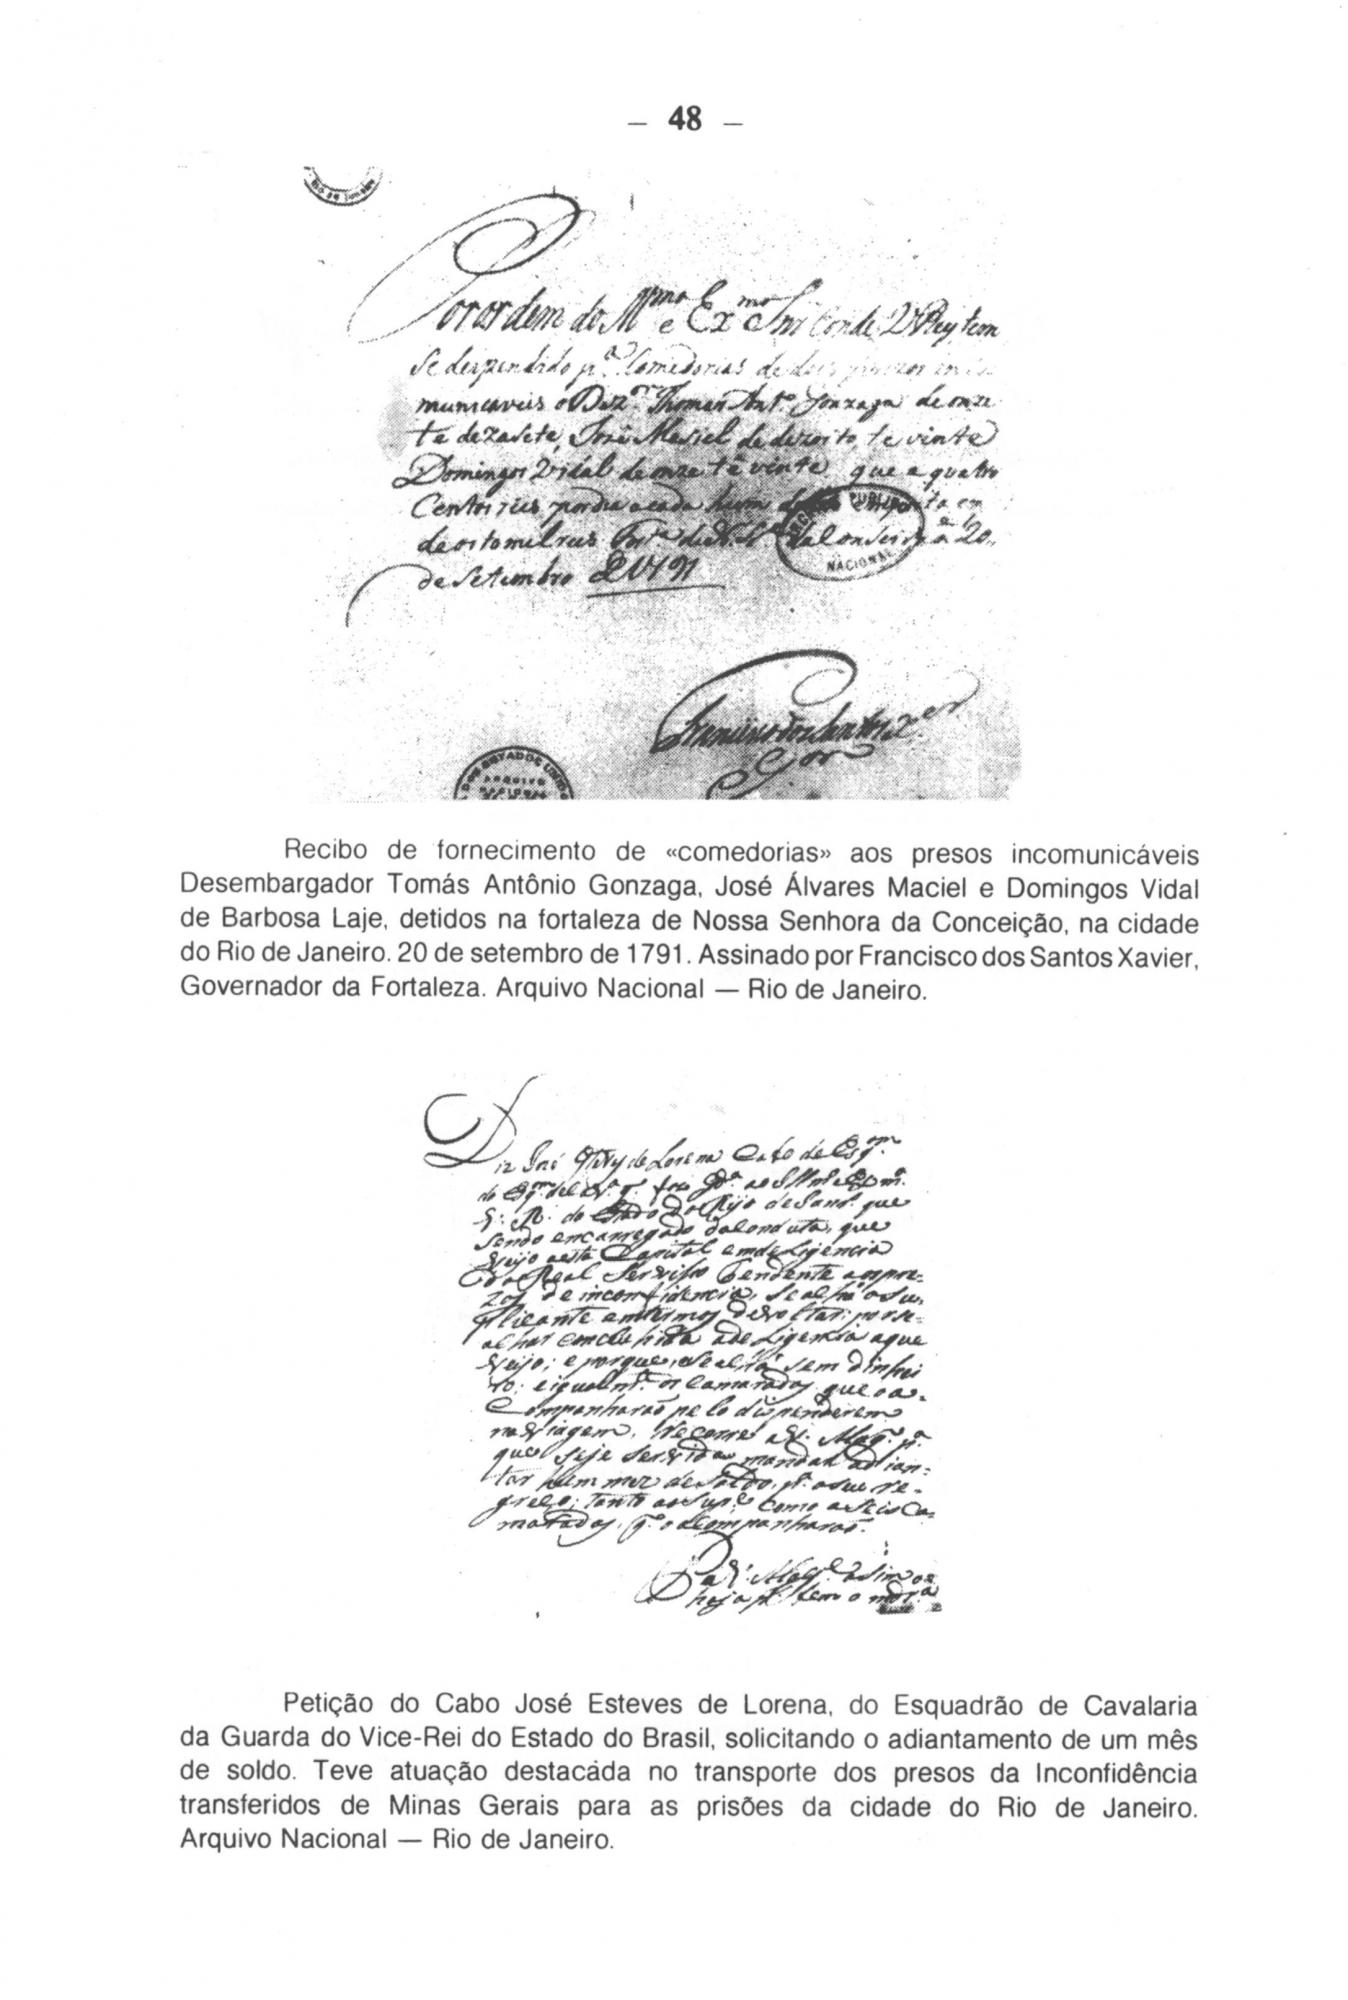 – 48 –
RIO DE JANEIRO
Por ordem do Illmo e Exmo Snr Conde V Rey tem
se despendido pa Comedorias de dois prezos inco
municaveis o Dezor Thomas Anto Gonzaga de onze
te dezasete, José Masiel de dezoito te vinte
Domingos Vidal de onze té vinte que a quatro
Centos reis por dia a cada hum
de oito mil reis Forta de N. Sa da Conseição a 20
de Setembro 1791
PUBLICO
NACIONAL
Francisco dos Santos Xer
Gor
DOS ESTADOS UNIDOS
ARQUIVO
NACIONAL
Recibo de fornecimento de «comedorias» aos presos incomunicáveis
Desembargador Tomás Antônio Gonzaga, José Álvares Maciel e Domingos Vidal
de Barbosa Laje, detidos na fortaleza de Nossa Senhora da Conceição, na cidade
do Rio de Janeiro. 20 de setembro de 1791. Assinado por Francisco dos Santos Xavier,
Governador da Fortaleza. Arquivo Nacional — Rio de Janeiro.
Diz José Estevz de Lorena Cabo de Esqm
do Estado do
sendo encarregado da Conduta, que
veijo nesta Capital em deligencia
do Real Servisso tendente aos pre-
zos de inconfidencia, se acha o Su-
plicante em termos de voltar por se
achar concluhida a deligencia a que
veijo; e porque se acha sem dinhei
ro; e igualmte os Camaradas que o a-
Companharão pelo dispenderem
na viagem, Recorre a V. Mag. pa
que seje servido mandar adian-
tar hum mez de Soldo, pa o seu re-
greço; tanto ao Supe como a seis Ca-
maradas, qe o acompanharão.
Pa V. Mag. asim o
haja pr bem
Petição do Cabo José Esteves de Lorena, do Esquadrão de Cavalaria
da Guarda do Vice-Rei do Estado do Brasil, solicitando o adiantamento de um mês
de soldo. Teve atuação destacáda no transporte dos presos da Inconfidência
transferidos de Minas Gerais para as prisões da cidade do Rio de Janeiro.
Arquivo Nacional — Rio de Janeiro.